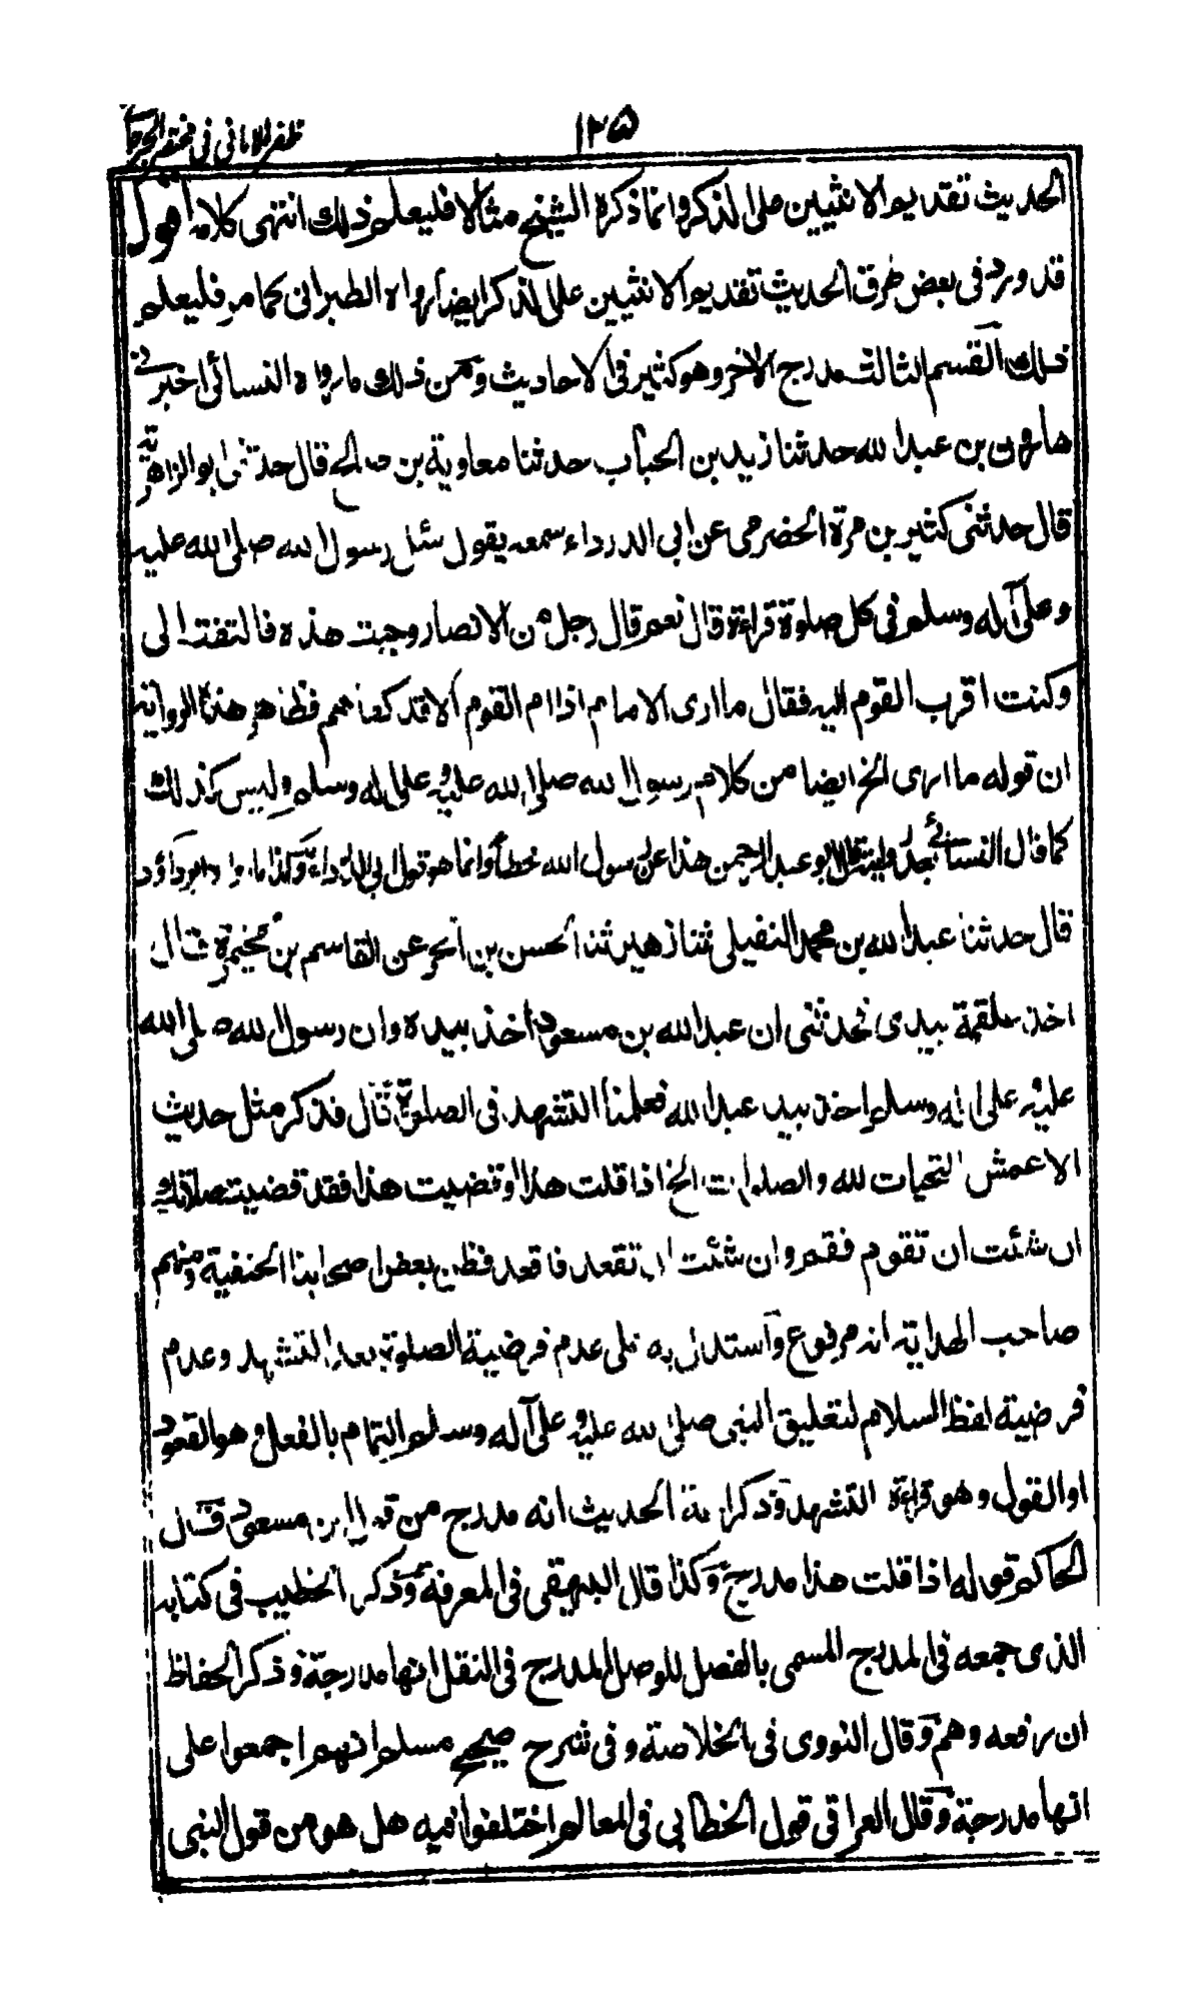 ١٢۵
ظفر الامانی فی مختصر الجرجا
الحدیث تقدیم الانثیین علی الذکر وانما ذکره الشیخ مثالا فلیعلم ذلك انتهی کلامه اقول
قد ورد فی بعض طرق الحدیث تقدیم الانثیین علی الذکر ایضا رواه الطبرانی کما مر فلیعلم
ذلك القسم الثالث مدرج الآخر وهو کثیر فی الاحادیث ومن ذلك ما رواه النسائی اخبرنی
هارون بن عبد الله حدثنا زید بن الحباب حدثنا معاویة بن صالح قال حدثنی ابو الزاهریة
قال حدثنی کثیر بن مرة الحضرمی عن ابی الدرداء سمعه یقول سئل رسول الله صلی الله علیه
وعلی آله وسلم فی کل صلوة قراءة قال نعم قال رجل من الانصار وجبت هذه فالتفت الی
وکنت اقرب القوم الیه فقال ما اری الامام اذا ام القوم الا قد کفاهم فظاهر هذه الروایة
ان قوله ما اری الخ ایضا من کلام رسول الله صلی الله علیه وعلی اله وسلم ولیس کذلك
کما قال النسائی بعد روایته قال ابو عبد الرحمن هذا عن رسول الله خطأ وانما هو قول ابی الدرداء وکذا ما رواه ابو داؤد
قال حدثنا عبد الله بن محمد النفیلی ثنا زهیر ثنا الحسن بن الحر عن القاسم بن مخیمرة قال
اخذ علقمة بیدی فحدثنی ان عبد الله بن مسعود اخذ بیده وان رسول الله صلی الله
علیه وعلی اله وسلم اخذ بید عبد الله فعلمنا التشهد فی الصلوة قال فذکر مثل حدیث
الاعمش التحیات لله والصلوات الخ اذا قلت هذا او قضیت هذا فقد قضیت صلاتك
ان شئت ان تقوم فقم وان شئت ان تقعد فاقعد فظن بعض اصحابنا الحنفیة ومنهم
صاحب الهدایة انه مرفوع واستدل به علی عدم فرضیة الصلوة بعد التشهد وعدم
فرضیة لفظ السلام لتعلیق النبی صلی الله علیه وعلی آله وسلم التمام بالفعل وهو القعود
او القول وهو قراءة التشهد وذکر ائمة الحدیث انه مدرج من قول ابن مسعود قال
الحاکم قوله اذا قلت هذا مدرج وکذا قال البیهقی فی المعرفة وذکر الخطیب فی کتابه
الذی جمعه فی المدرج المسمی بالفصل للوصل المدرج فی النقل انها مدرجة وذکر الحفاظ
ان رفعه وهم وقال النووی فی الخلاصة وفی شرح صحیح مسلم انهم اجمعوا علی
انها مدرجة وقال العراقی قول الخطابی فی المعالم اختلفوا فیه هل هو من قول النبی